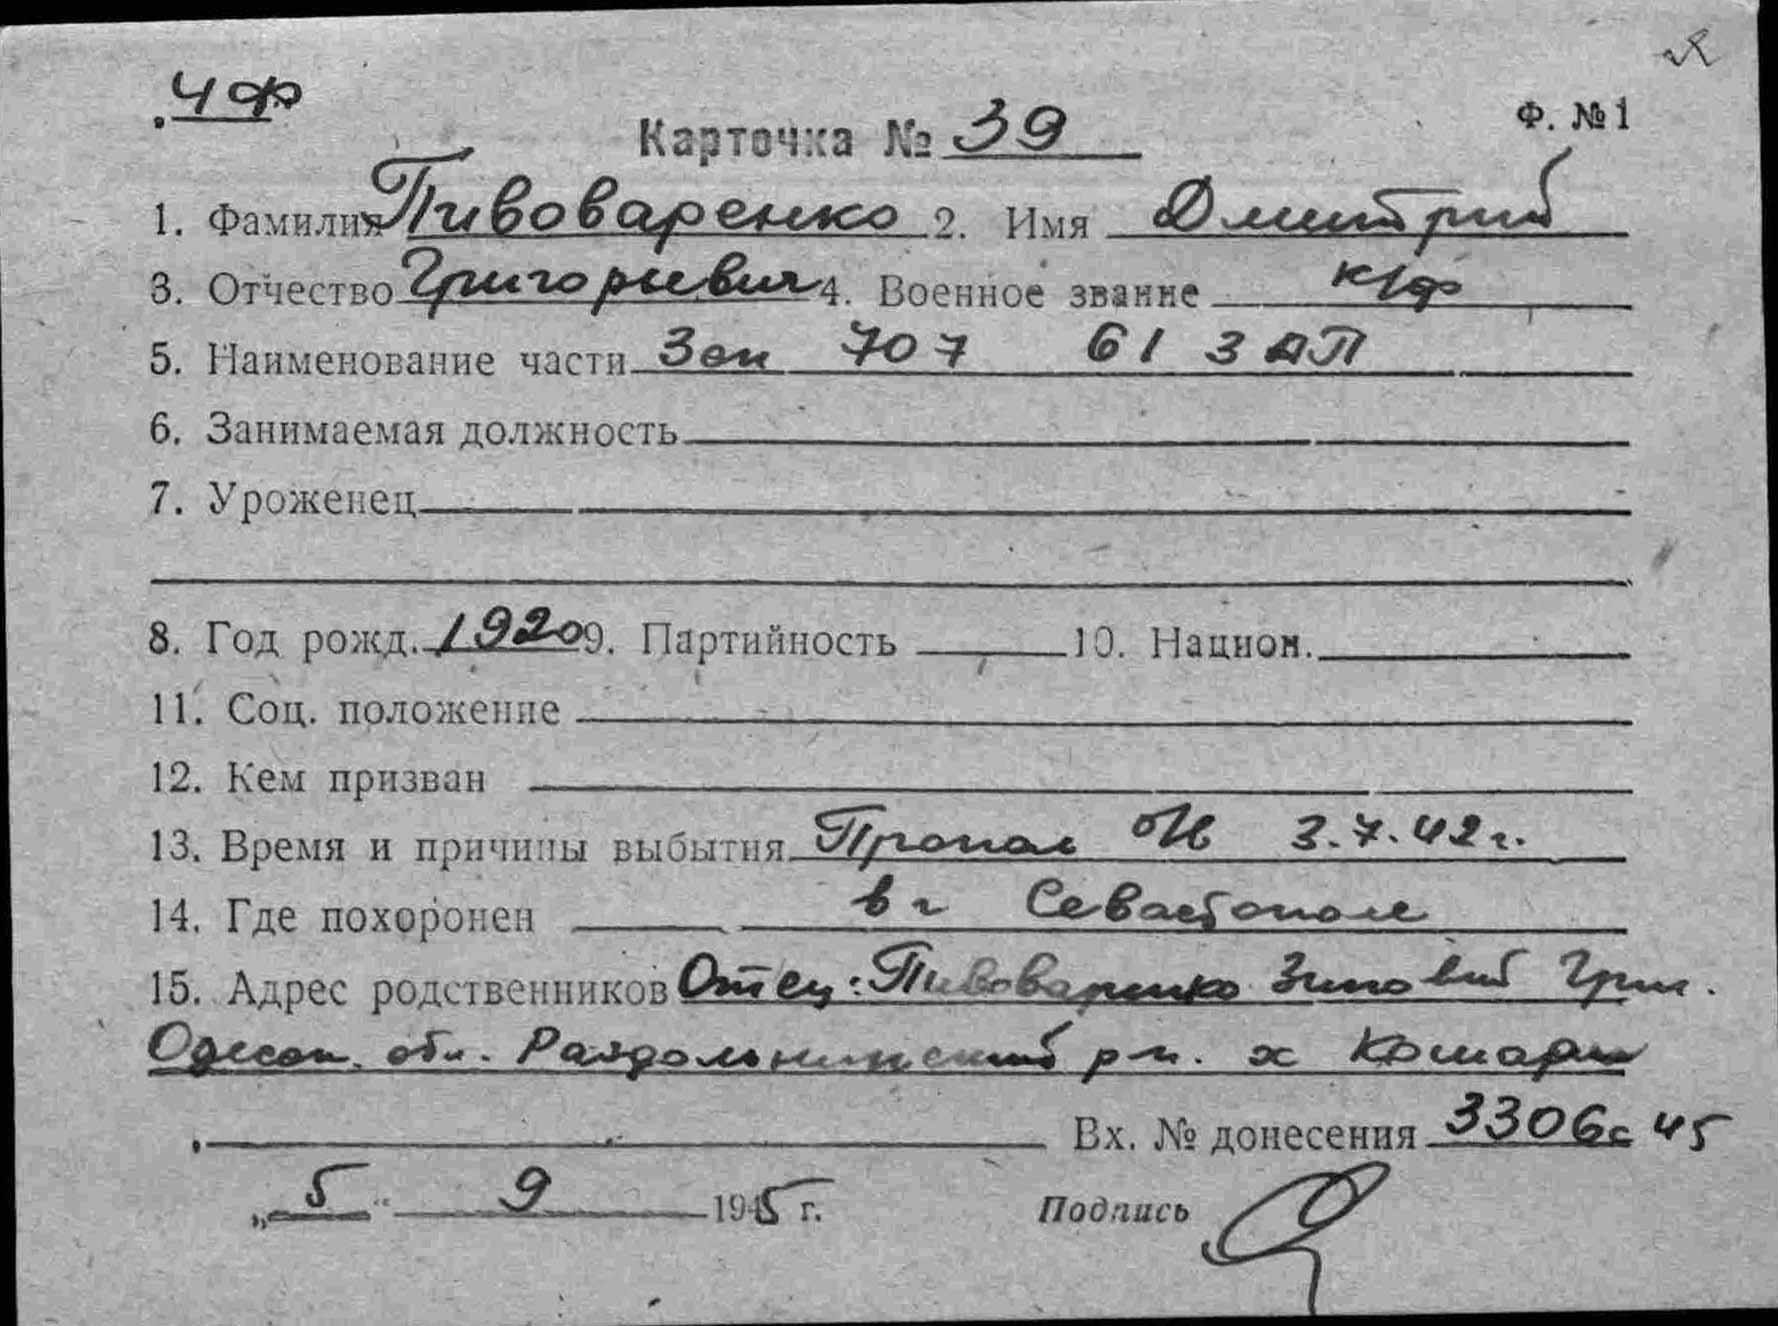 ЧФ
Ф. №1
Карточка № 39
1. Фамилия Пивоваренко 2. Имя Дмитрий
3. Отчество Григорьевич 4. Военное звание к/ф
5. Наименование части Зен 707 61 ЗАП
6. Занимаемая должность
7. Уроженец
8. Год рожд. 1920 9. Партийность 10. Национ.
11. Соц. положение
12. Кем призван
13. Время и причины выбытия Пропал 3.7.42 г.
14. Где похоронен в г Севастополе
15. Адрес родственников Отец: Пивоваренко Зиновий Григ.
Одесск. обл. Раздольнинский р-н. х Кошары
Вх. № донесения 3306с 45
„5“ 9 1945 г. Подпись